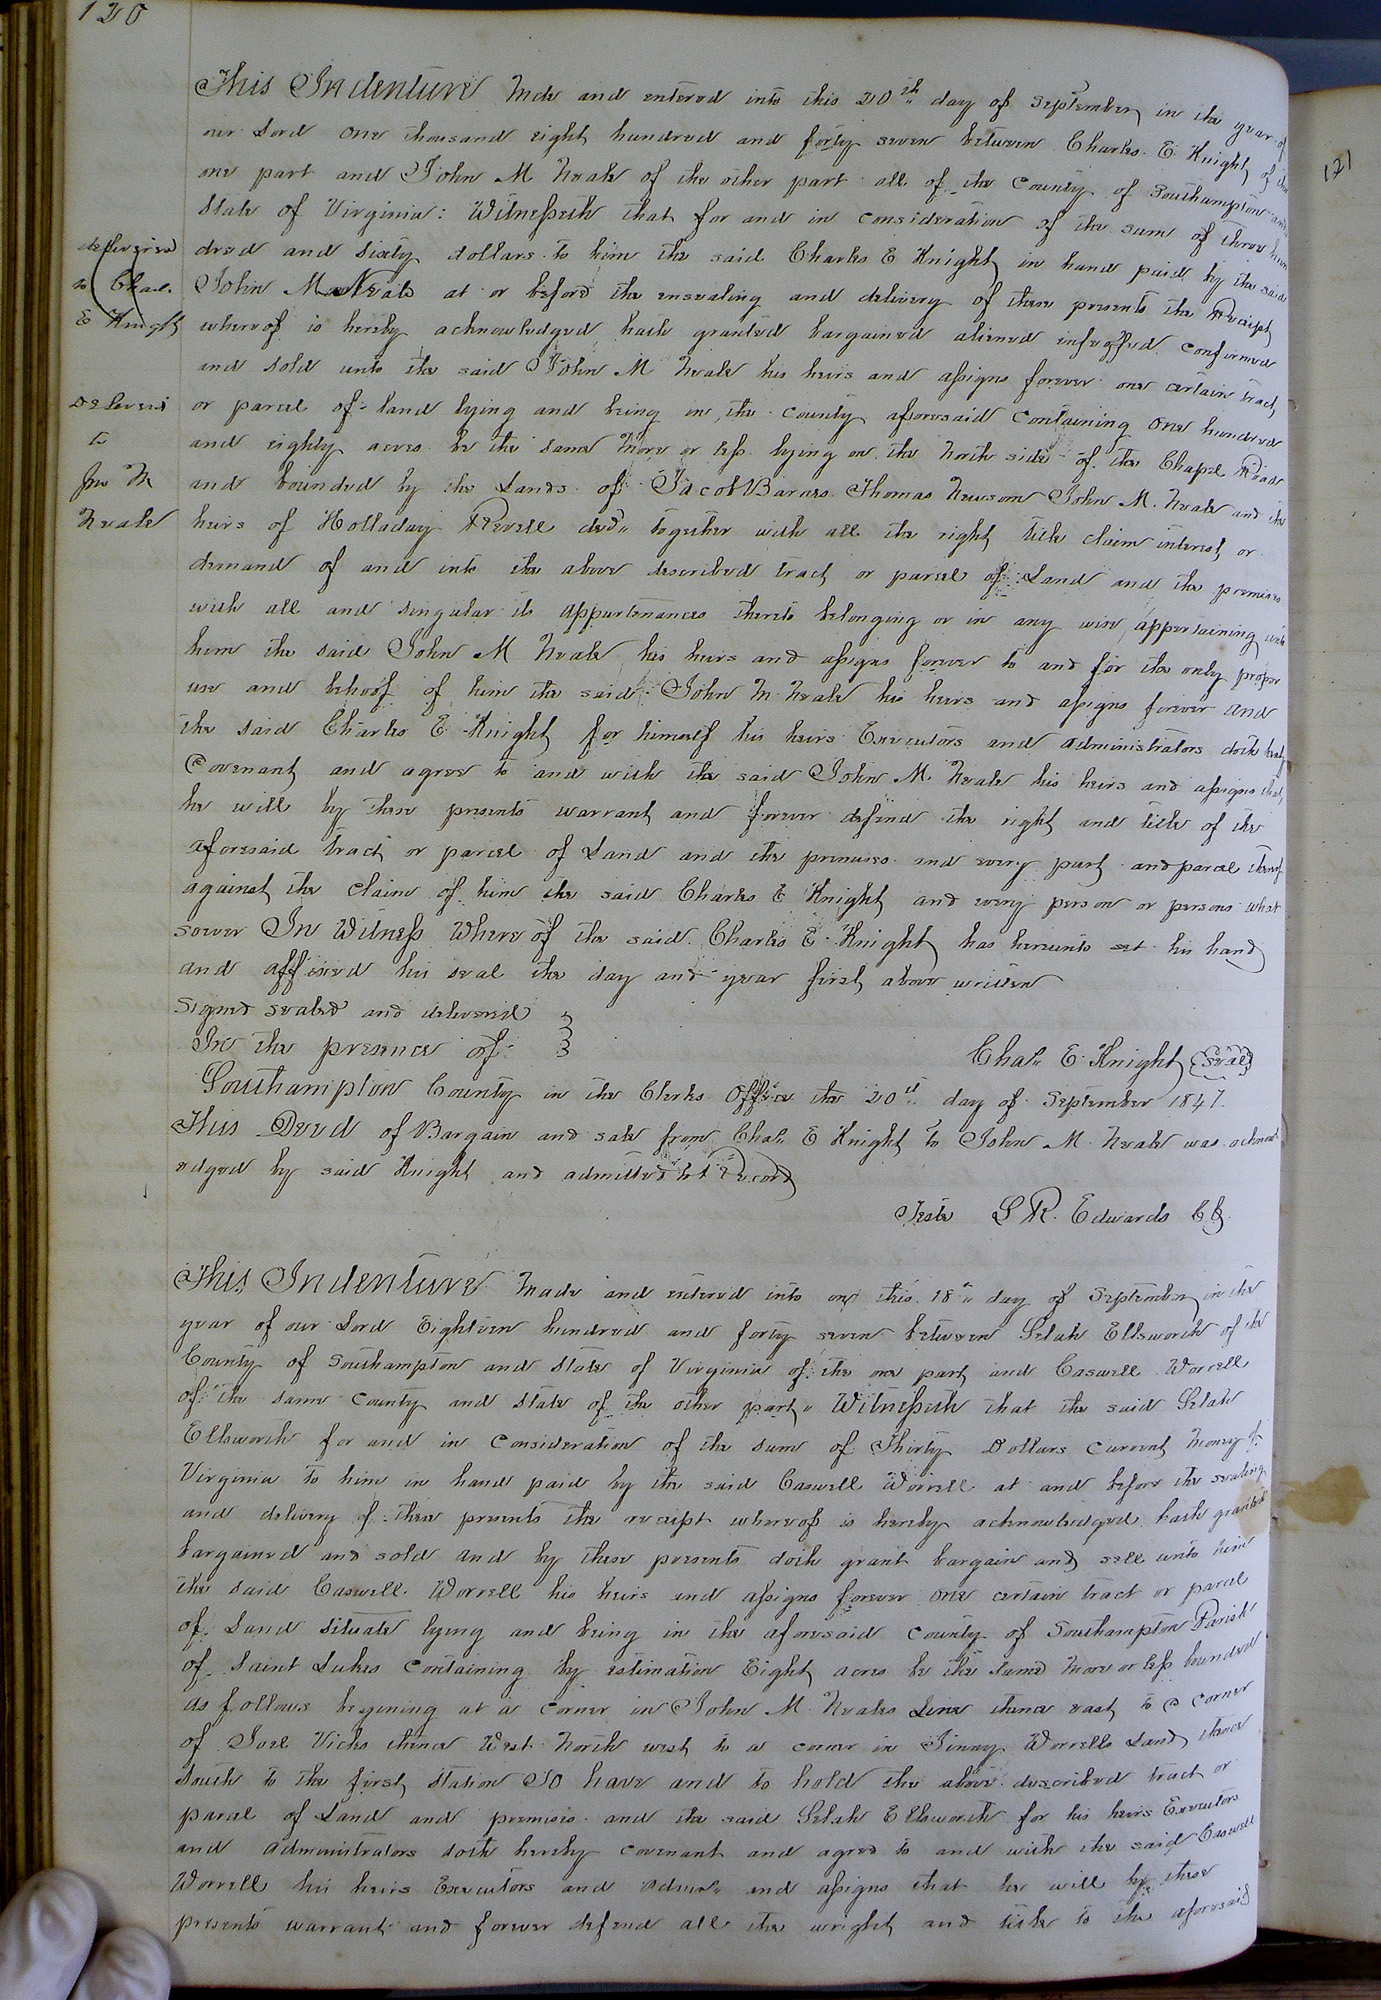 120
121
This Indenture Made and entered into this 20th day of September in the year of
our Lord one thousand eight hundred and forty seven between Charles E Knight of the
one part and John M Neale of the other part all of the County of Southampton and
State of Virginia: Witnesseth that for and in consideration of the sum of three hun
dred and sixty dollars to him the said Charles E Knight in hand paid by the said
John M Neale at or before the ensealing and delivery of these presents the Receipt
whereof is hereby acknowledged hath granted bargained aliened infeoffed confirmed
and sold unto the said John M Neale his heirs and assigns forever one certain tract
or parcel of land lying and being in the County aforesaid Containing One hundred
and eighty acres be the same more or less lying on the North side of the Chapel Road
and bounded by the Lands of Jacob Barnes Thomas Newsom John M. Neale and the
heirs of Holladay Revell decd together with all the right title claim interest or
demand of and into the above described tract or parcel of Land and the premises
with all and singular its appurtenances thereto belonging or in any wise appertaining unto
him the said John M Neale his heirs and assigns forever to and for the only proper
use and behoof of him the said John M Neale his heirs and assigns forever and
the said Charles E Knight for himself his heirs Executors and administrators doth hereby
Covenant and agree to and with the said John M. Neale his heirs and assigns that
he will by these presents warrant and forever defend the right and title of the
aforesaid tract or parcel of Land and the premises and every part and parcel thereof
against the claim of him the said Charles E Knight and every person or persons what
soever In Witness Where of the said Charles E Knight has hereunto set his hand
and affixed his seal the day and year first above written
Signed sealed and delivered
In the presence of
Chas E Knight {Seal}
Southampton County in the Clerks Office the 20th day of September 1847.
This Deed of Bargain and sale from Chas E Knight to John M. Neale was acknowl
edged by said Knight and admitted to Record
Teste L R. Edwards CC
delivered
to Chas.
E Knight
Delivered
to
Jno M
Neale
This Indenture Made and entered into on this 18th day of September in the
year of our Lord Eighteen hundred and forty seven between Selah Ellsworth of the
County of Southampton and State of Virginia of the one part and Caswell Worrell
of the same County and State of the other part Witnesseth that the said Selah
Ellsworth for and in Consideration of the sum of Thirty Dollars Current Money of
Virginia to him in hand paid by the said Caswell Worrell at and before the sealing
and delivery of these presents the receipt whereof is hereby acknowledged hath granted
bargained and sold and by these presents doth grant bargain and sell unto him
the said Caswell Worrell his heirs and assigns forever one certain tract or parcel
of Land situate lying and being in the aforesaid County of Southampton Parish
of Saint Lukes Containing by estimation Eight acres be the same more or less bounded
as follows begining at a Corner in John M Neales Line thence east to a corner
of Joel Vicks thence West North west to a corner in Jinny Worrells Land thence
South to the first Station To have and to hold the above described tract or
parcel of Land and premises and the said Selah Ellsworth for his heirs Executors
and administrators doth hereby covenant and agree to and with the said Caswell
Worrell his heirs Executors and Admrs and assigns that he will by these
presents warrant and forever defend all the wright and title to the aforesaid